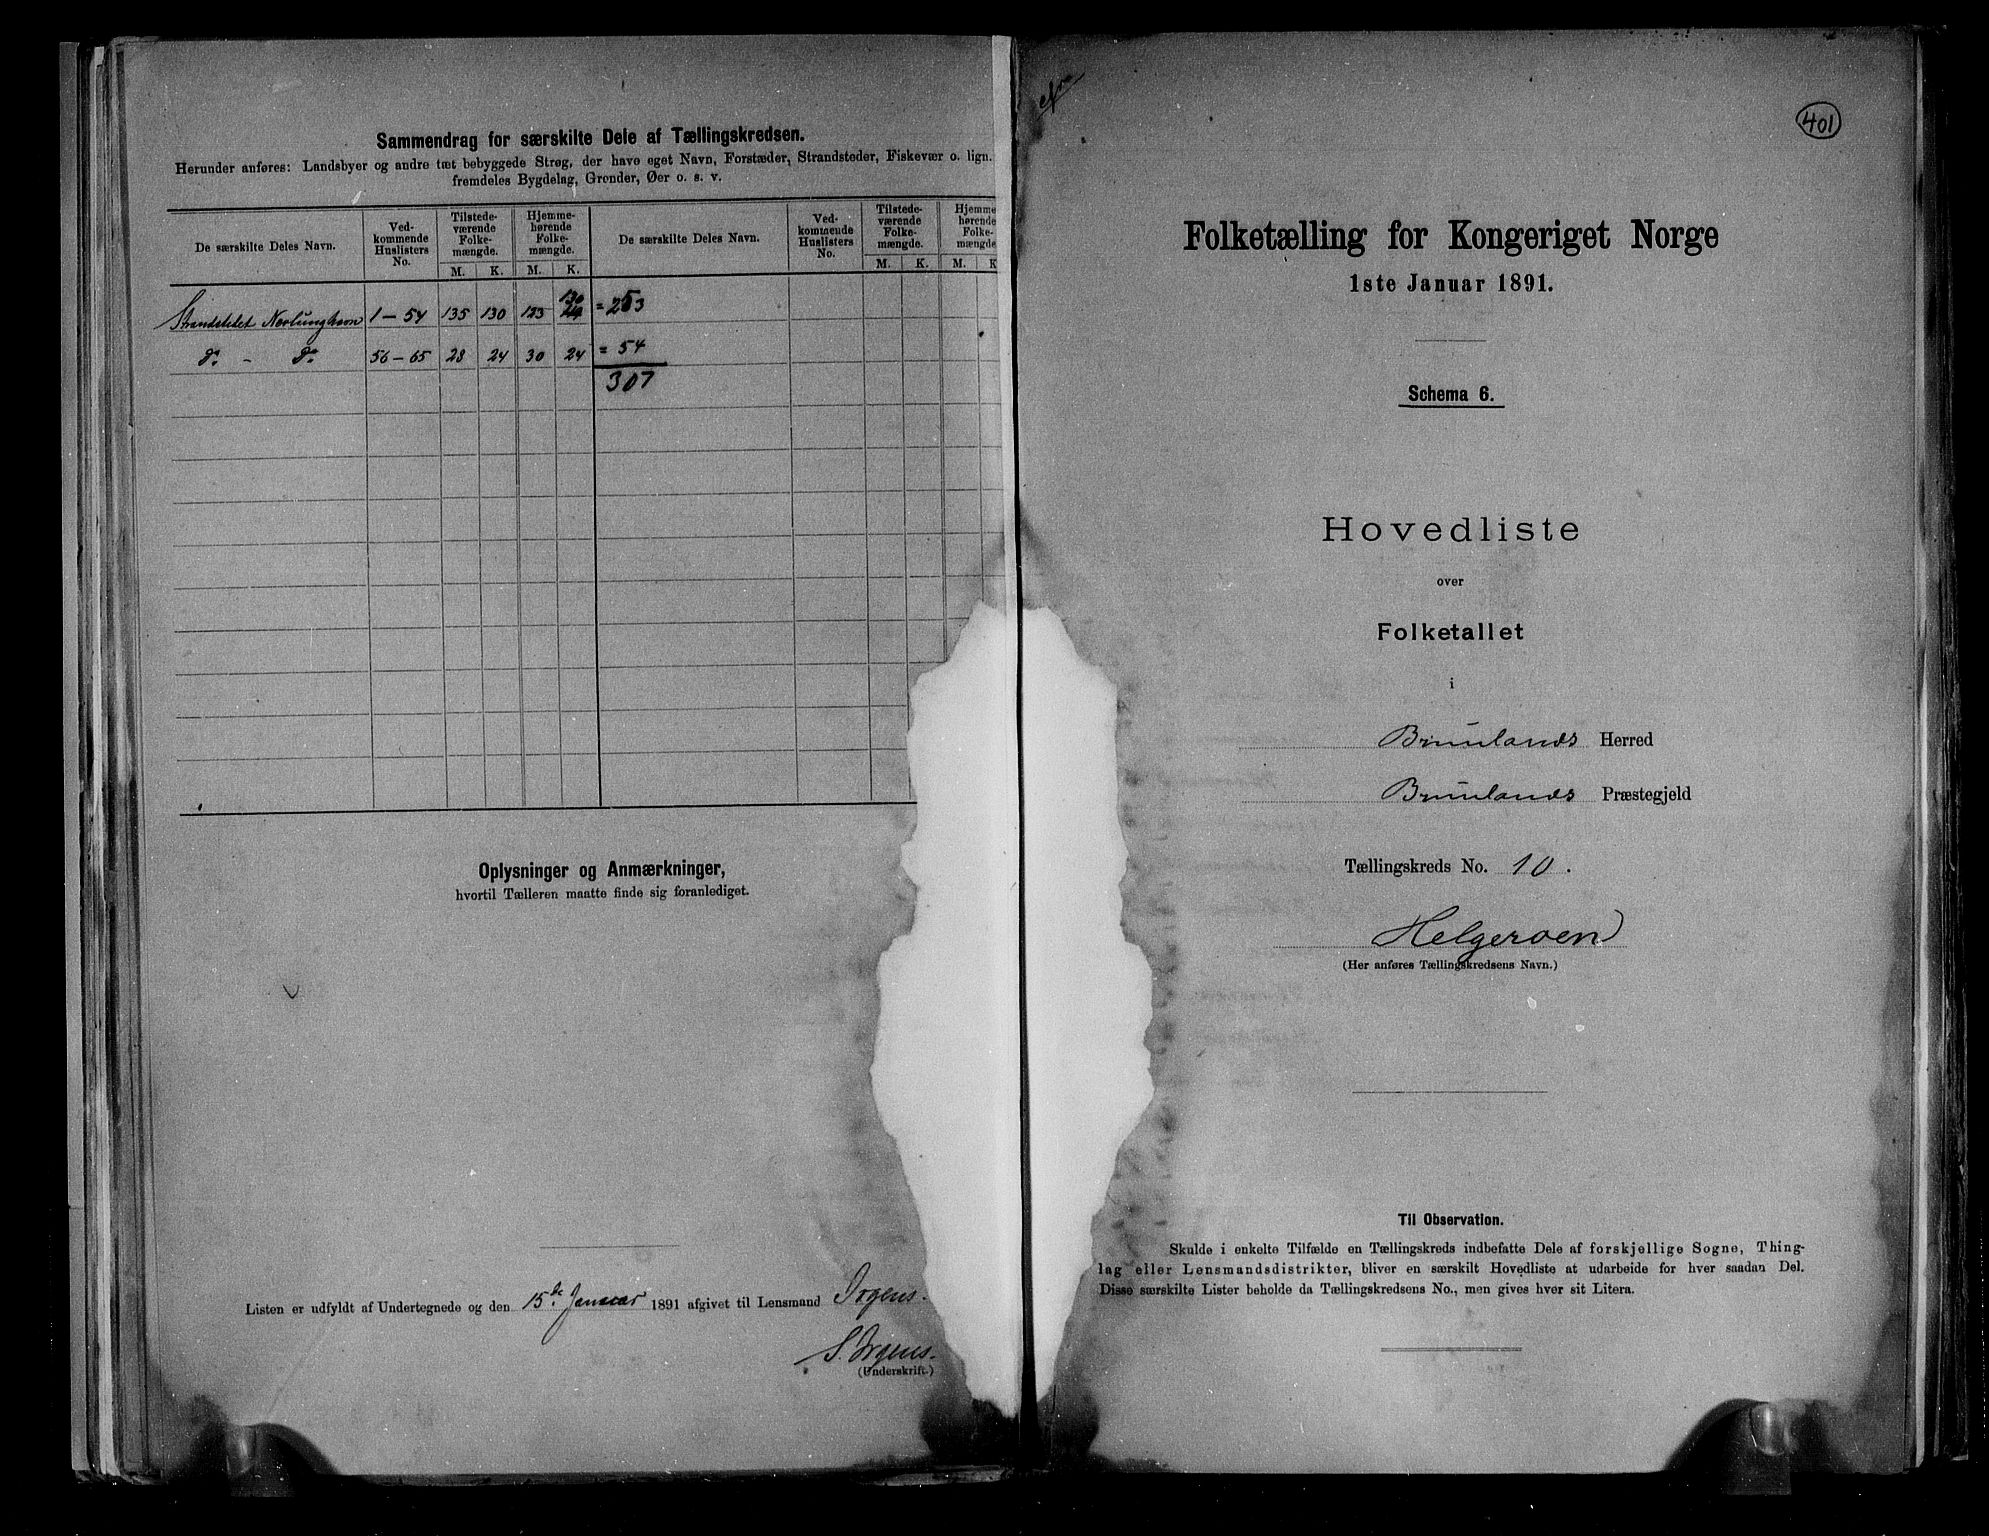 Sammendrag for særskilte Dele af Tællingskredsen.
Herunder anføres: Landsbyer og andre tæt bebyggede Strøg, der have eget Navn, Forstæder, Strandsteder, Fiskevær o. lign.
fremdeles Bygdelag, Grender, Øer o. s. v.
De særskilte Deles Navn. Ved-kommende Huslisters No. Tilstede-værende Folke-mængde. Hjemme-hørende Folke-mængde. De særskilte Deles Navn. Ved-kommende Huslisters No. Tilstede-værende Folke-mængde. Hjemme-hørende Folke-mængde.
M. K. M. K. M. K. M. K
Strandstedet Nevlunghavn 1 – 54 135 130 123 130 = 253
do. - do. 56 – 65 28 24 30 24 = 54
307
Oplysninger og Anmærkninger,
hvortil Tælleren maatte finde sig foranlediget.
Listen er udfyldt af Undertegnede og den 15de Januar 1891 afgivet til Lensmand Ørgens.
S. Ørgens.
(Underskrift.)
401
Folketælling for Kongeriget Norge
1ste Januar 1891.
Schema 6.
Hovedliste
over
Folketallet
i
Brunlands Herred
Brunlands Præstegjeld
Tællingskreds No. 10.
Helgeroen
(Her anføres Tællingskredsens Navn.)
Til Observation.
Skulde i enkelte Tilfælde en Tællingskreds indbefatte Dele af forskjellige Sogne, Thing-
lag eller Lensmandsdistrikter, bliver en særskilt Hovedliste at udarbeide for hver saadan Del.
Disse særskilte Lister beholde da Tællingskredsens No., men gives hver sit Litera.